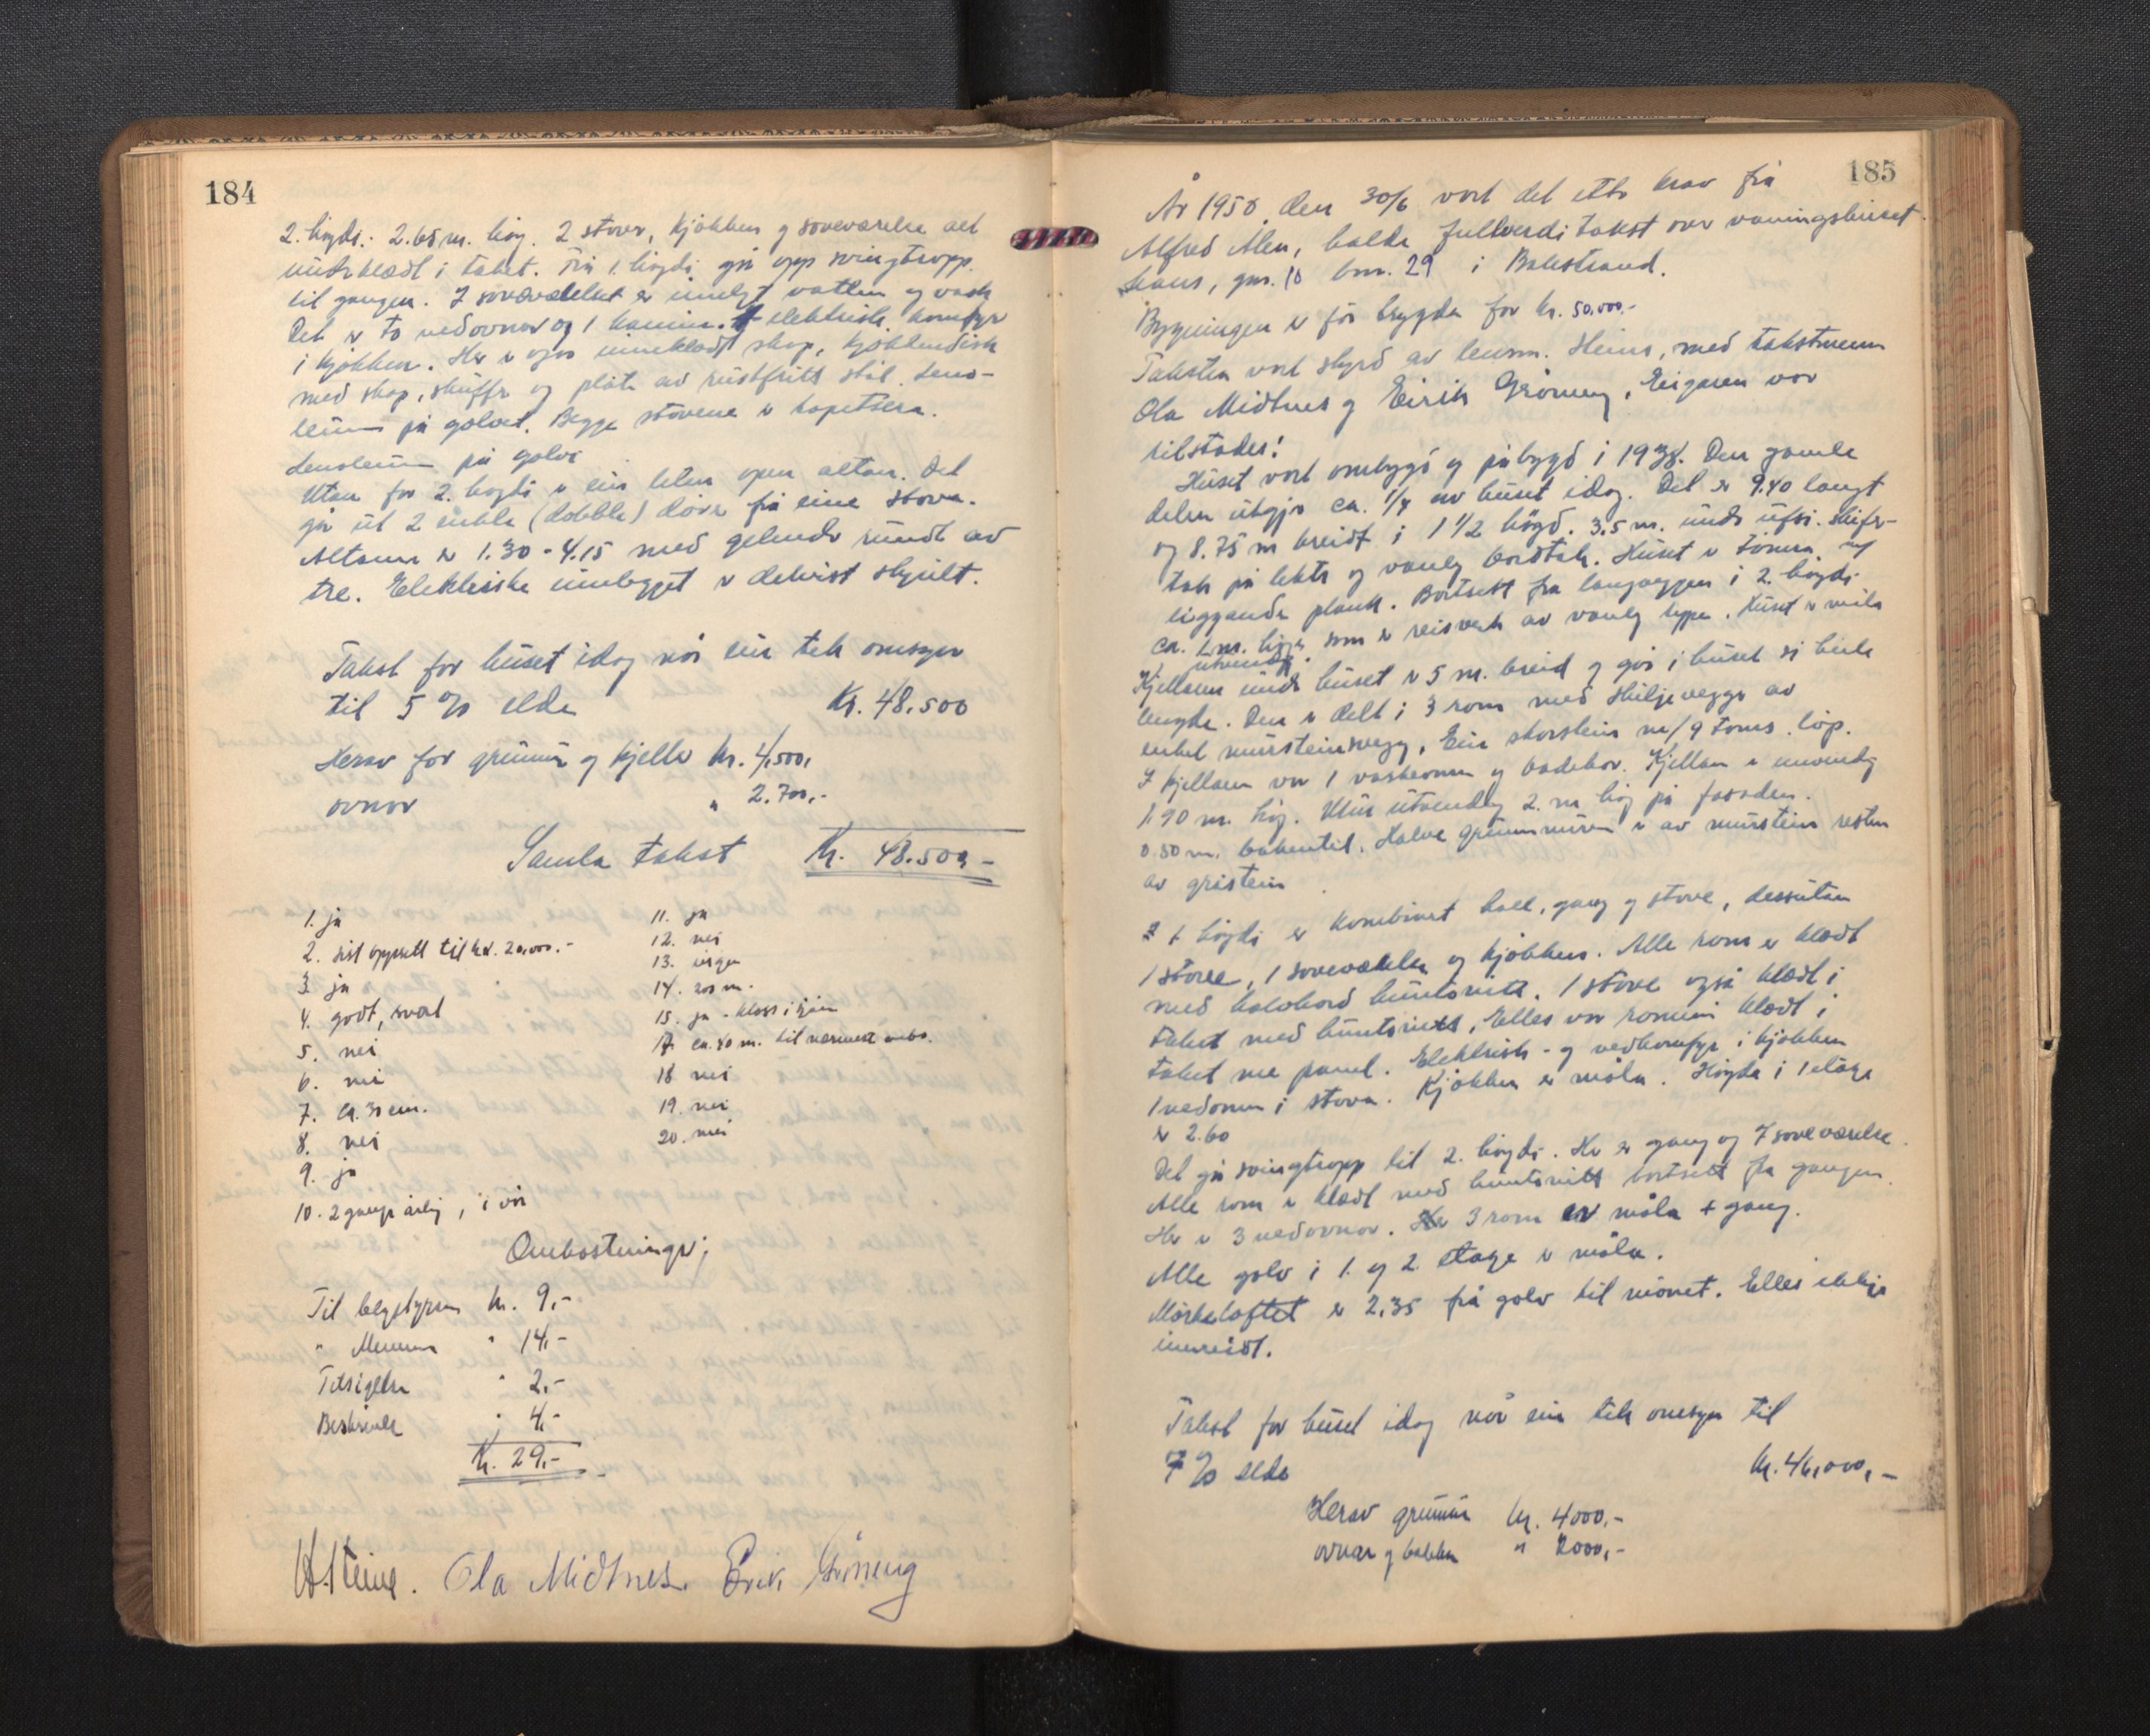 184
2. høgdi: 2.65 m. høg. 2 stover, kjøkken og soveværelse alt
underklædt i taket. Frå 1. høgdi går opp svingtropp
til gangen. I soveværelset er innlagt vatten og vask
Det er to vedovnar og 1 kamin. 1 elektrisk komfyr
i kjøkken. Her er også innekledt skap, kjøkkendisk
med skap, skuffer og plate av rustfritt stål. Leno-
leum på golvet. Begge stovene er tapetsera.
Lenoleum på golvi
Utan for 2. høgdi er ein liten open altan. Det
går ut 2 enkle (dobble) dører frå eine stova.
Altanen er 1.30 - 4.15 med gelender rundt av
tre. Elektriske innlegget er delvist skjult.
Takst for huset idag når ein tek omsyn
til 5 % elde Kr. 48.500
Herav for grunnur og kjeller kr. 4,500,
ovnar " 2.700,-
Samla takst Kr. 48.500 -
1. ja
2. sist oppsett til kr. 20,000.-
3. ja
4. godt, svart
5. nei
6. nei
7. ca. 30 cm.
8. nei
9. ja
10. 2 gange årlig, i vår
11. ja
12. nei
13. ingen
14. 200 m.
15. ja - klass i
17. ca. 80 m. til nærmest
18 nei
19. nei
20. nei
Omkostninger;
Til kr. 9,-
" Mennene " 14,-
Tilsigelse " 2,-
" 4,-
Kr. 29,-
H. Steine. Ola Midtnes. Erik Grøneng
185
År 1950 den 30/6 vart det etter krav frå
Alfred Alen, halde fullverdi takst over vaningshuset
hans, gnr. 10 bnr. 29 i Balestrand.
Bygningen er før trygda for kr. 50.000.-
Taksten vart styrd av lensm. Steine, med takstmenn
Ola Midtnes og Eirik Grøneng, Eigaren var
tilstades!
Huset vart ombygd og påbygd i 1938. Den gamle
delen utgjer ca. 1/4 av huset idag. Det er 9.40 langt
og 8.75 m breidt i 1 1/2 høgd. 3.5 m. under ufsi. skifer-
tak på lekter og vanleg bordtak. Huset er tømra, av
liggande plank. Bortsett frå langveggen i 2. høgdi
ca. 2 m. høgd som er reisverk av vanleg type. Huset er måla
utvendig.
Kjellaren under huset er 5 m. breid og går i huset si heile
lengde. Den er delt i 3 rom med skiljevegger av
enkel mursteinsvegg, Ein skorstein m/ 9 toms. løp.
I kjellaren er 1 vaskeomn og badekar. Kjellar er innvendig
1.90 m. høg. Mur utvendig 2. m høg på fasaden.
0.50 m. bakentil. Halve grunnmuren er av murstein resten
av gråstein
1 høgdi er kombinert hall, gang og stove, dessutan
1 stove, 1 soveværelse og kjøkken. Alle rom er klædt
med halvhard huntonitt. 1 stove også klædt i
taket med huntonitt, Elles er romma klædt i
taket me panel. Elektrisk - og vedkomfyr i kjøkken
1 vedomn i stova. Kjøkken er måla. Høgde i 1 etage
er 2.60
Det går svingtropp til 2. høgdi. Her er gang og 7 soveværelse.
Alle rom er klædt med huntonitt bortsett fra gangen.
Her er 3 vedovnar. 3 rom er måla + gang.
Alle golv i 1. og 2. etage er måla.
Mørkeloftet er 2.35 frå golv til mønet. Elles ikkje
innreidt.
Takst for huset idag når ein tek omsyn til
7 % elde kr. 46,000,-
Herav grunnur kr. 4000,-
ovnar og " 2000,-